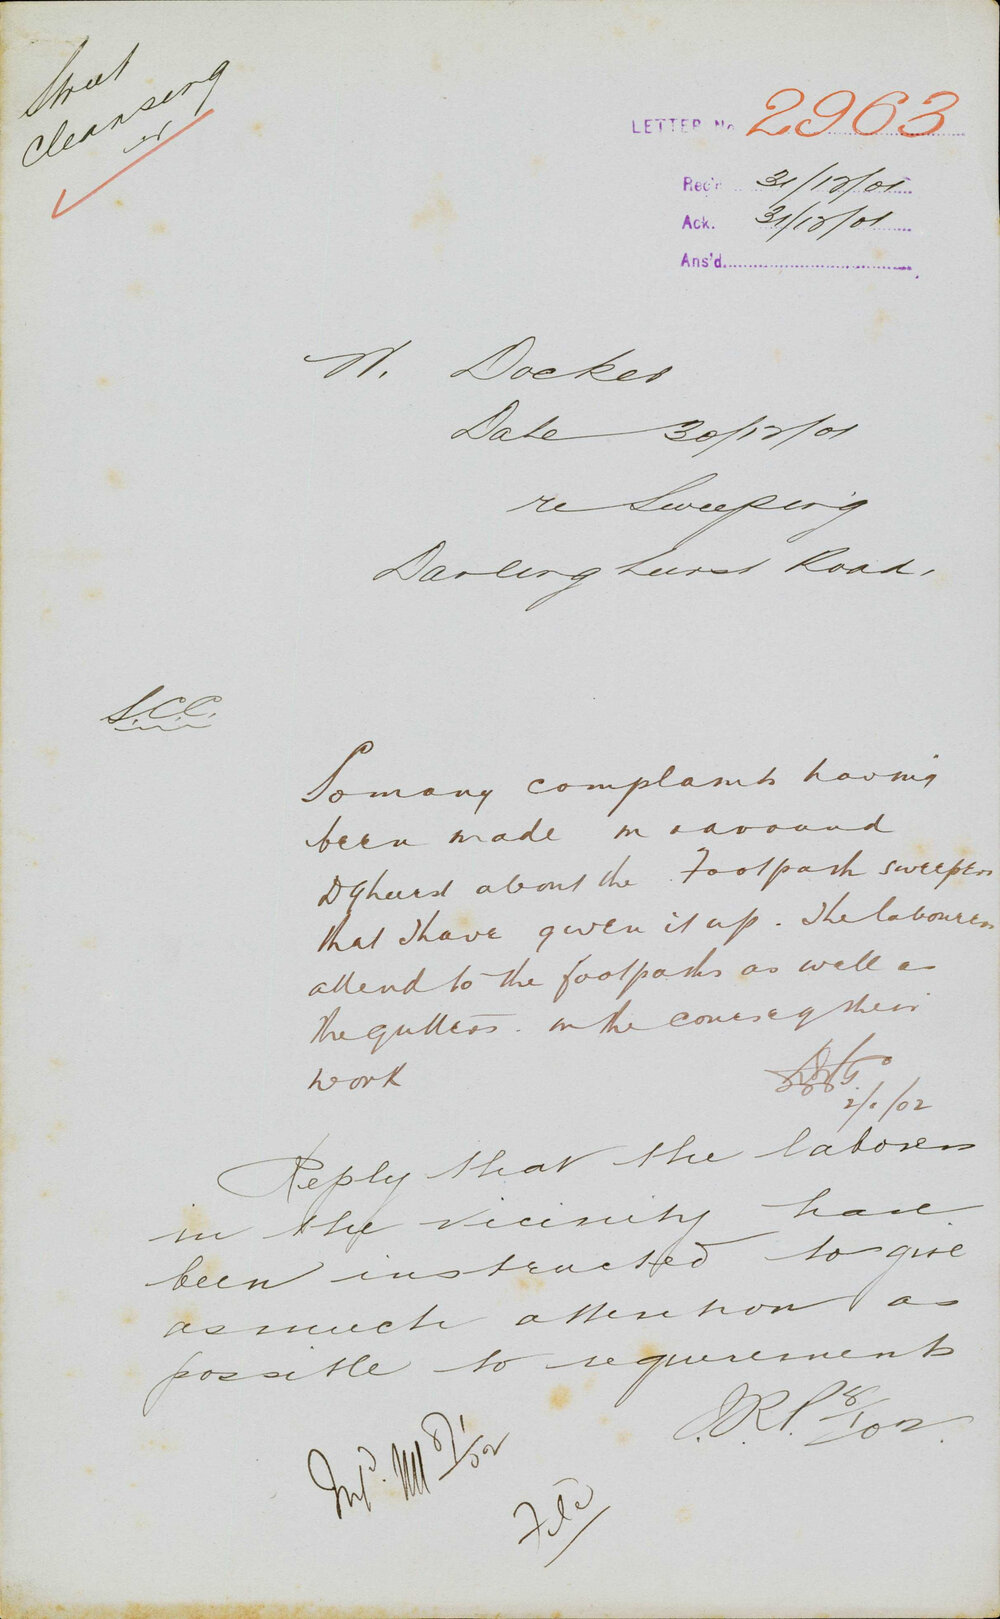 Street
Cleansing
LETTER No. 2963
Rec'd 31/12/01
Ack. 31/12/01
Ans'd
W. Docker
Date 30/12/01
re Sweeping
Darlinghurst Road.
S.C.C.
So many complaints having
been made in & around
D'ghurst about the Footpath sweepers
that I have given it up. The labourers
attend to the footpaths as well as
the gutters in the course of their
work
2/1/02
Reply that the laborers
in the vicinity have
been instructed to give
as much attention as
possible to requirements
J.R.P. 8/1/02
Inf'd. 8/1/02
File